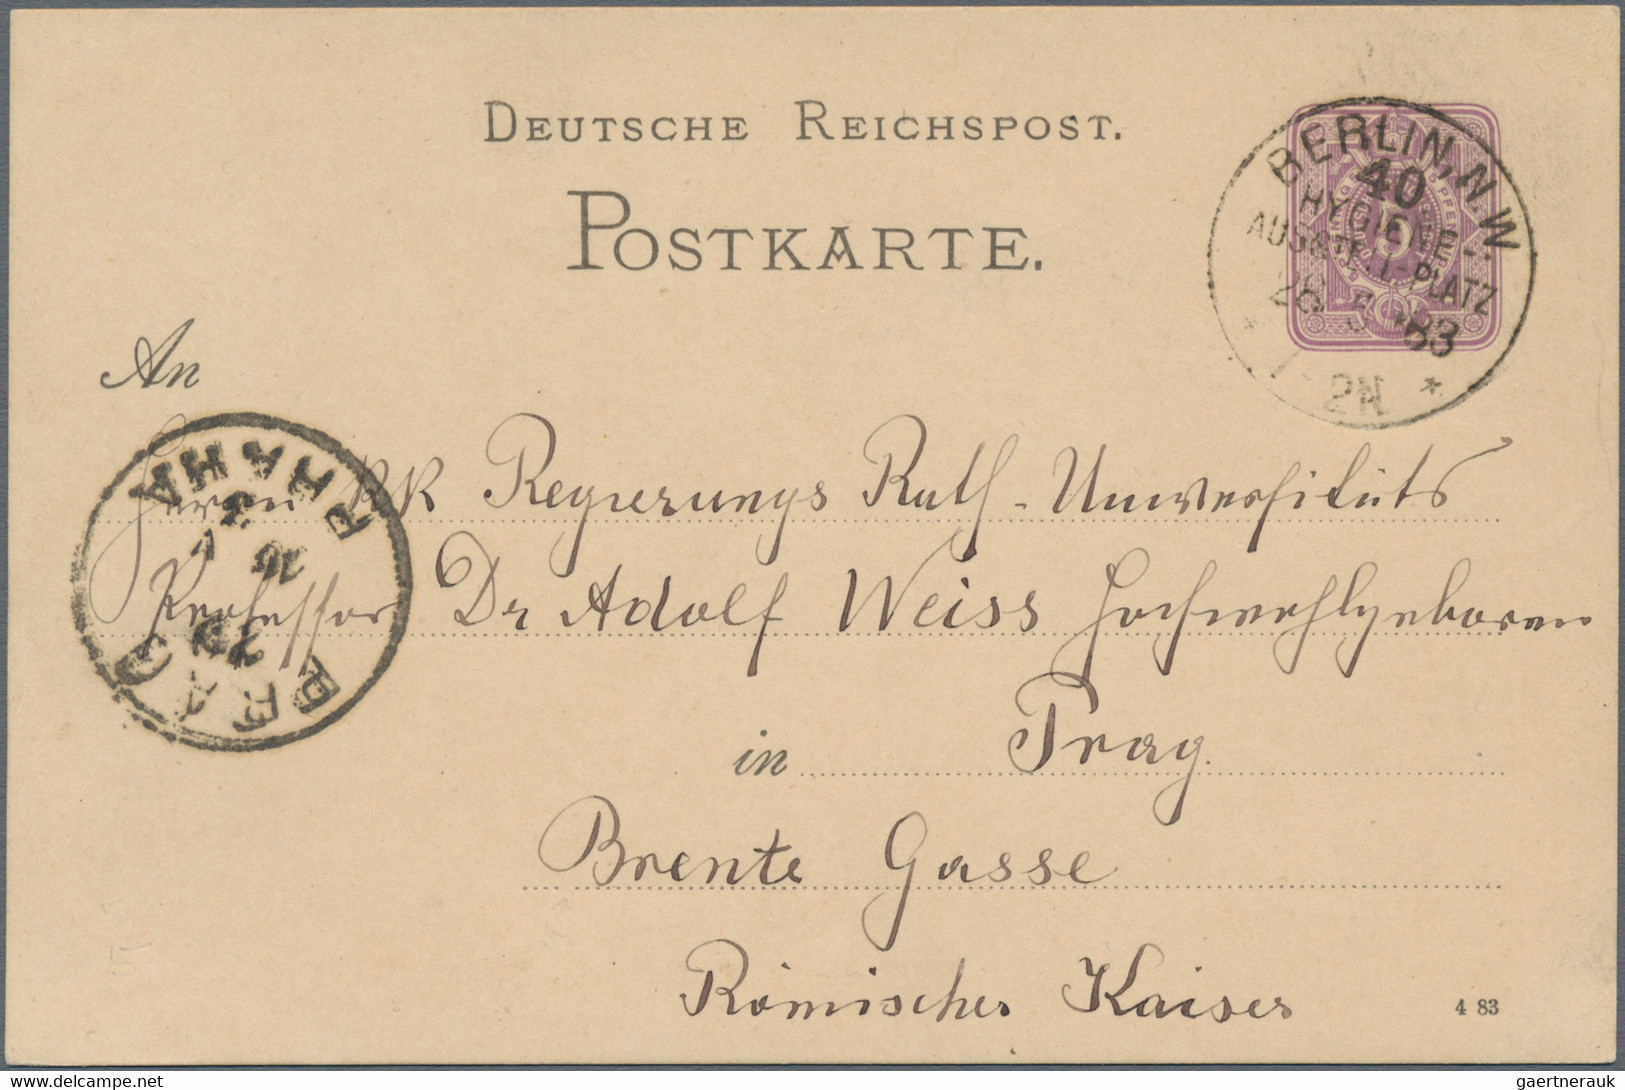 DEUTSCHE REICHSPOST.
POSTKARTE.
BERLIN, N.W.
40
HYGIENE-
AUSSTELL-PLATZ
83
2N
*
An
PRAHA
PRAG
Herrn KK Regierungs Rath-Universitäts
Professor Dr Adolf Weiss Hochwohlgeboren
in Prag.
Brente Gasse
Römischer Kaiser
4 83
delcampe.net
gaertnerauk